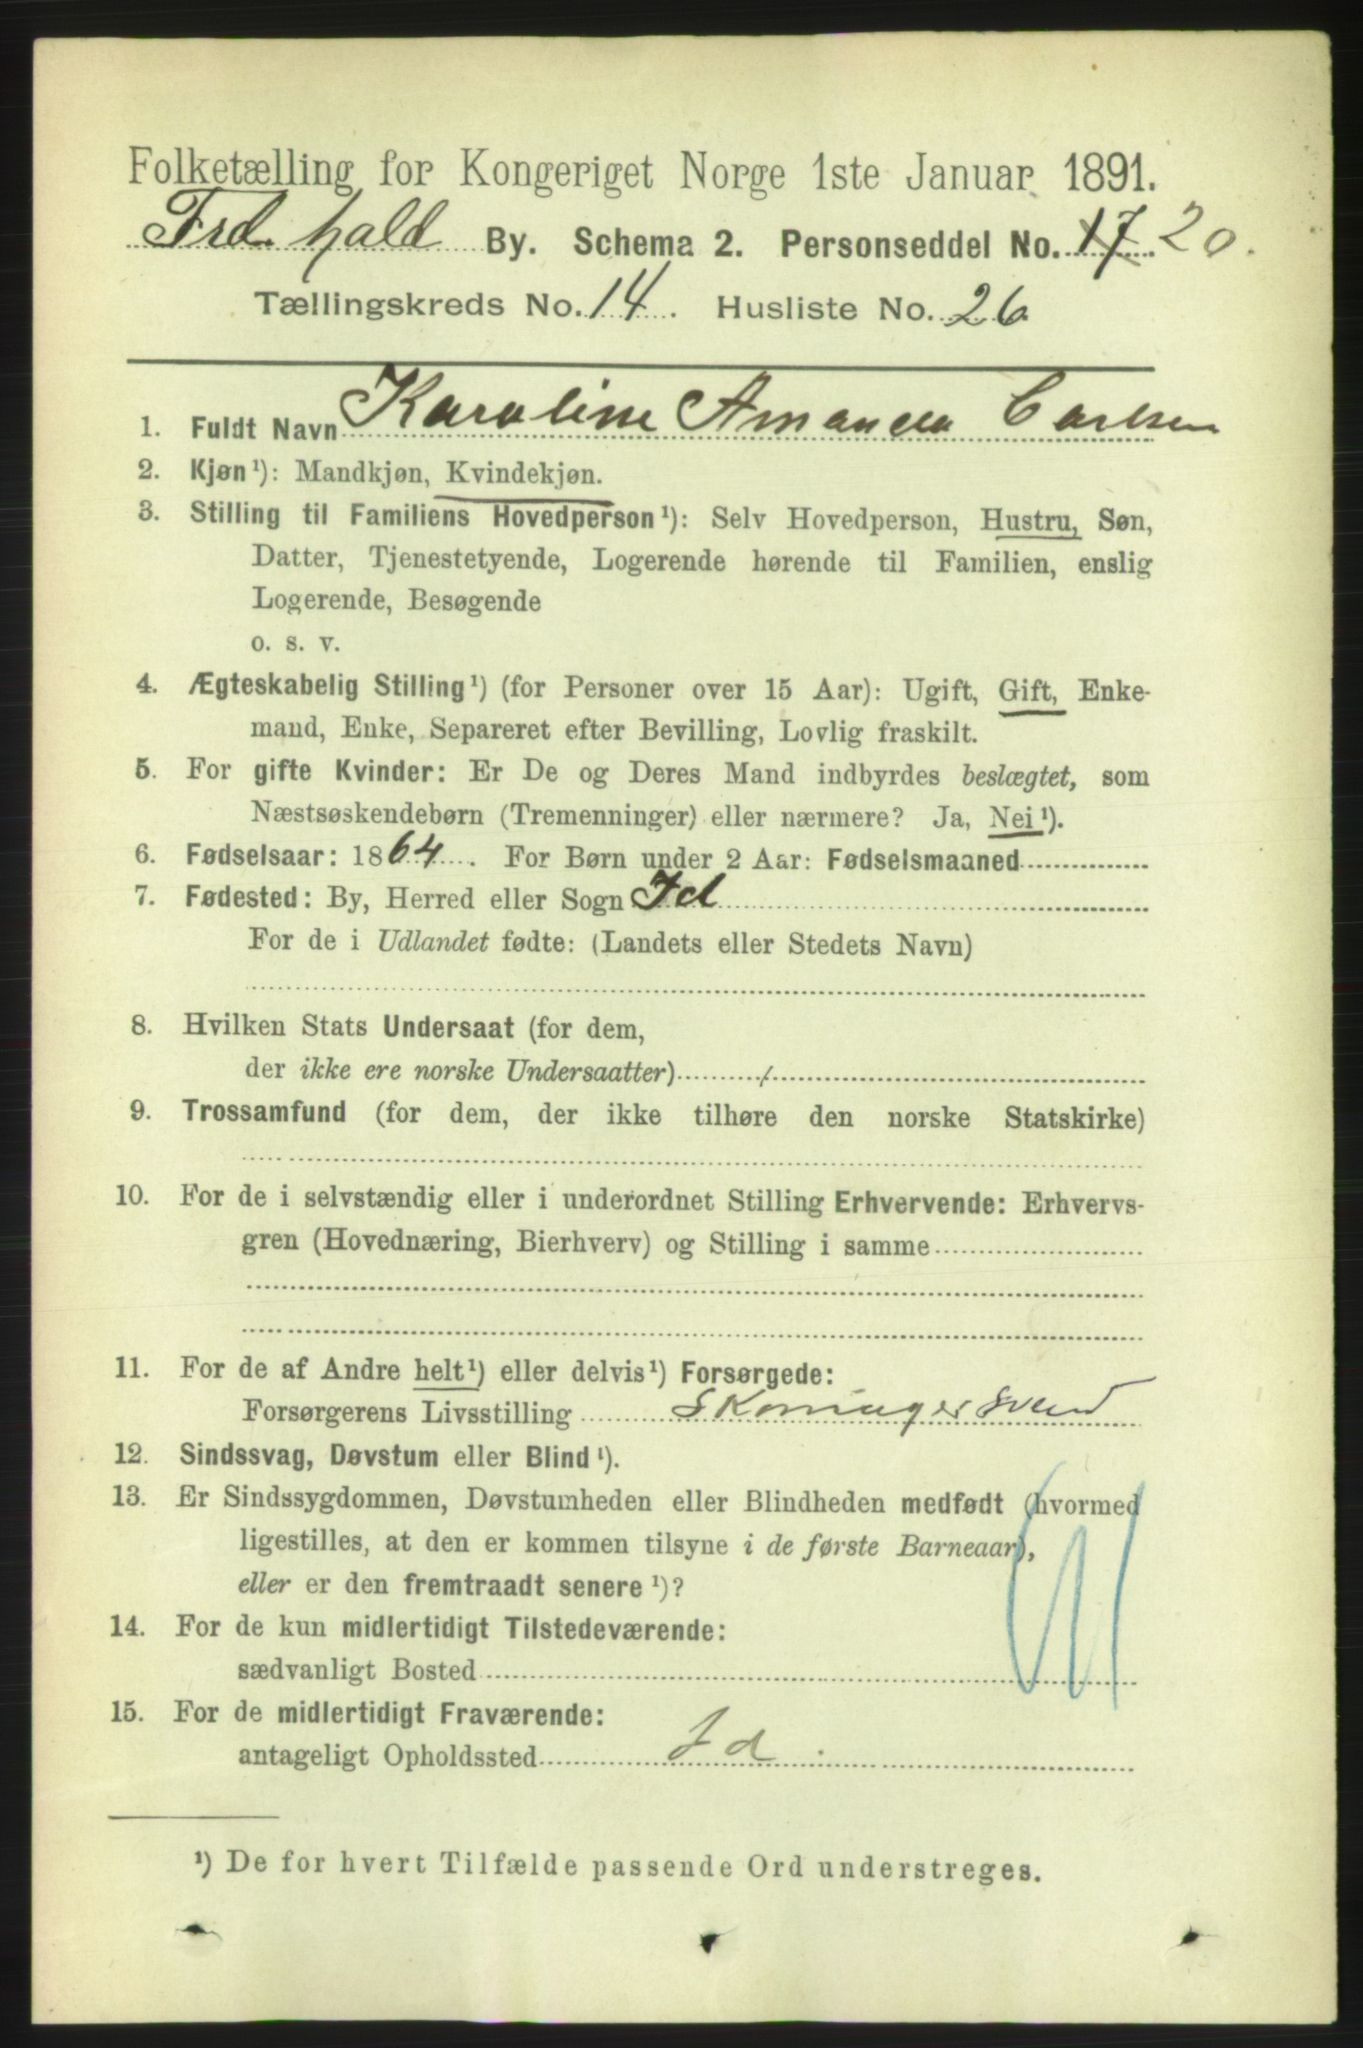 Folketælling for Kongeriget Norge 1ste Januar 1891.
Frd. hald By. Schema 2. Personseddel No. 17. 20.
Tællingskreds No. 14. Husliste No. 26
1. Fuldt Navn Karoline Amanda Carlsen
2. Kjøn¹): Mandkjøn, Kvindekjøn.
3. Stilling til Familiens Hovedperson¹): Selv Hovedperson, Hustru, Søn,
Datter, Tjenestetyende, Logerende hørende til Familien, enslig
Logerende, Besøgende
o. s. v.
4. Ægteskabelig Stilling¹) (for Personer over 15 Aar): Ugift, Gift, Enke-
mand, Enke, Separeret efter Bevilling, Lovlig fraskilt.
5. For gifte Kvinder: Er De og Deres Mand indbyrdes beslægtet, som
Næstsøskendebørn (Tremenninger) eller nærmere? Ja, Nei¹).
6. Fødselsaar: 1864. For Børn under 2 Aar: Fødselsmaaned
7. Fødested: By, Herred eller Sogn Id
For de i Udlandet fødte: (Landets eller Stedets Navn)
8. Hvilken Stats Undersaat (for dem,
der ikke ere norske Undersaatter)
9. Trossamfund (for dem, der ikke tilhøre den norske Statskirke)
10. For de i selvstændig eller i underordnet Stilling Erhvervende: Erhvervs-
gren (Hovednæring, Bierhverv) og Stilling i samme
11. For de af Andre helt¹) eller delvis¹) Forsørgede:
Forsørgerens Livsstilling
12. Sindssvag, Døvstum eller Blind¹).
13. Er Sindssygdommen, Døvstumheden eller Blindheden medfødt (hvormed
ligestilles, at den er kommen tilsyne i de første Barneaar),
eller er den fremtraadt senere¹)?
14. For de kun midlertidigt Tilstedeværende:
sædvanligt Bosted
15. For de midlertidigt Fraværende:
antageligt Opholdssted Id.
¹) De for hvert Tilfælde passende Ord understreges.